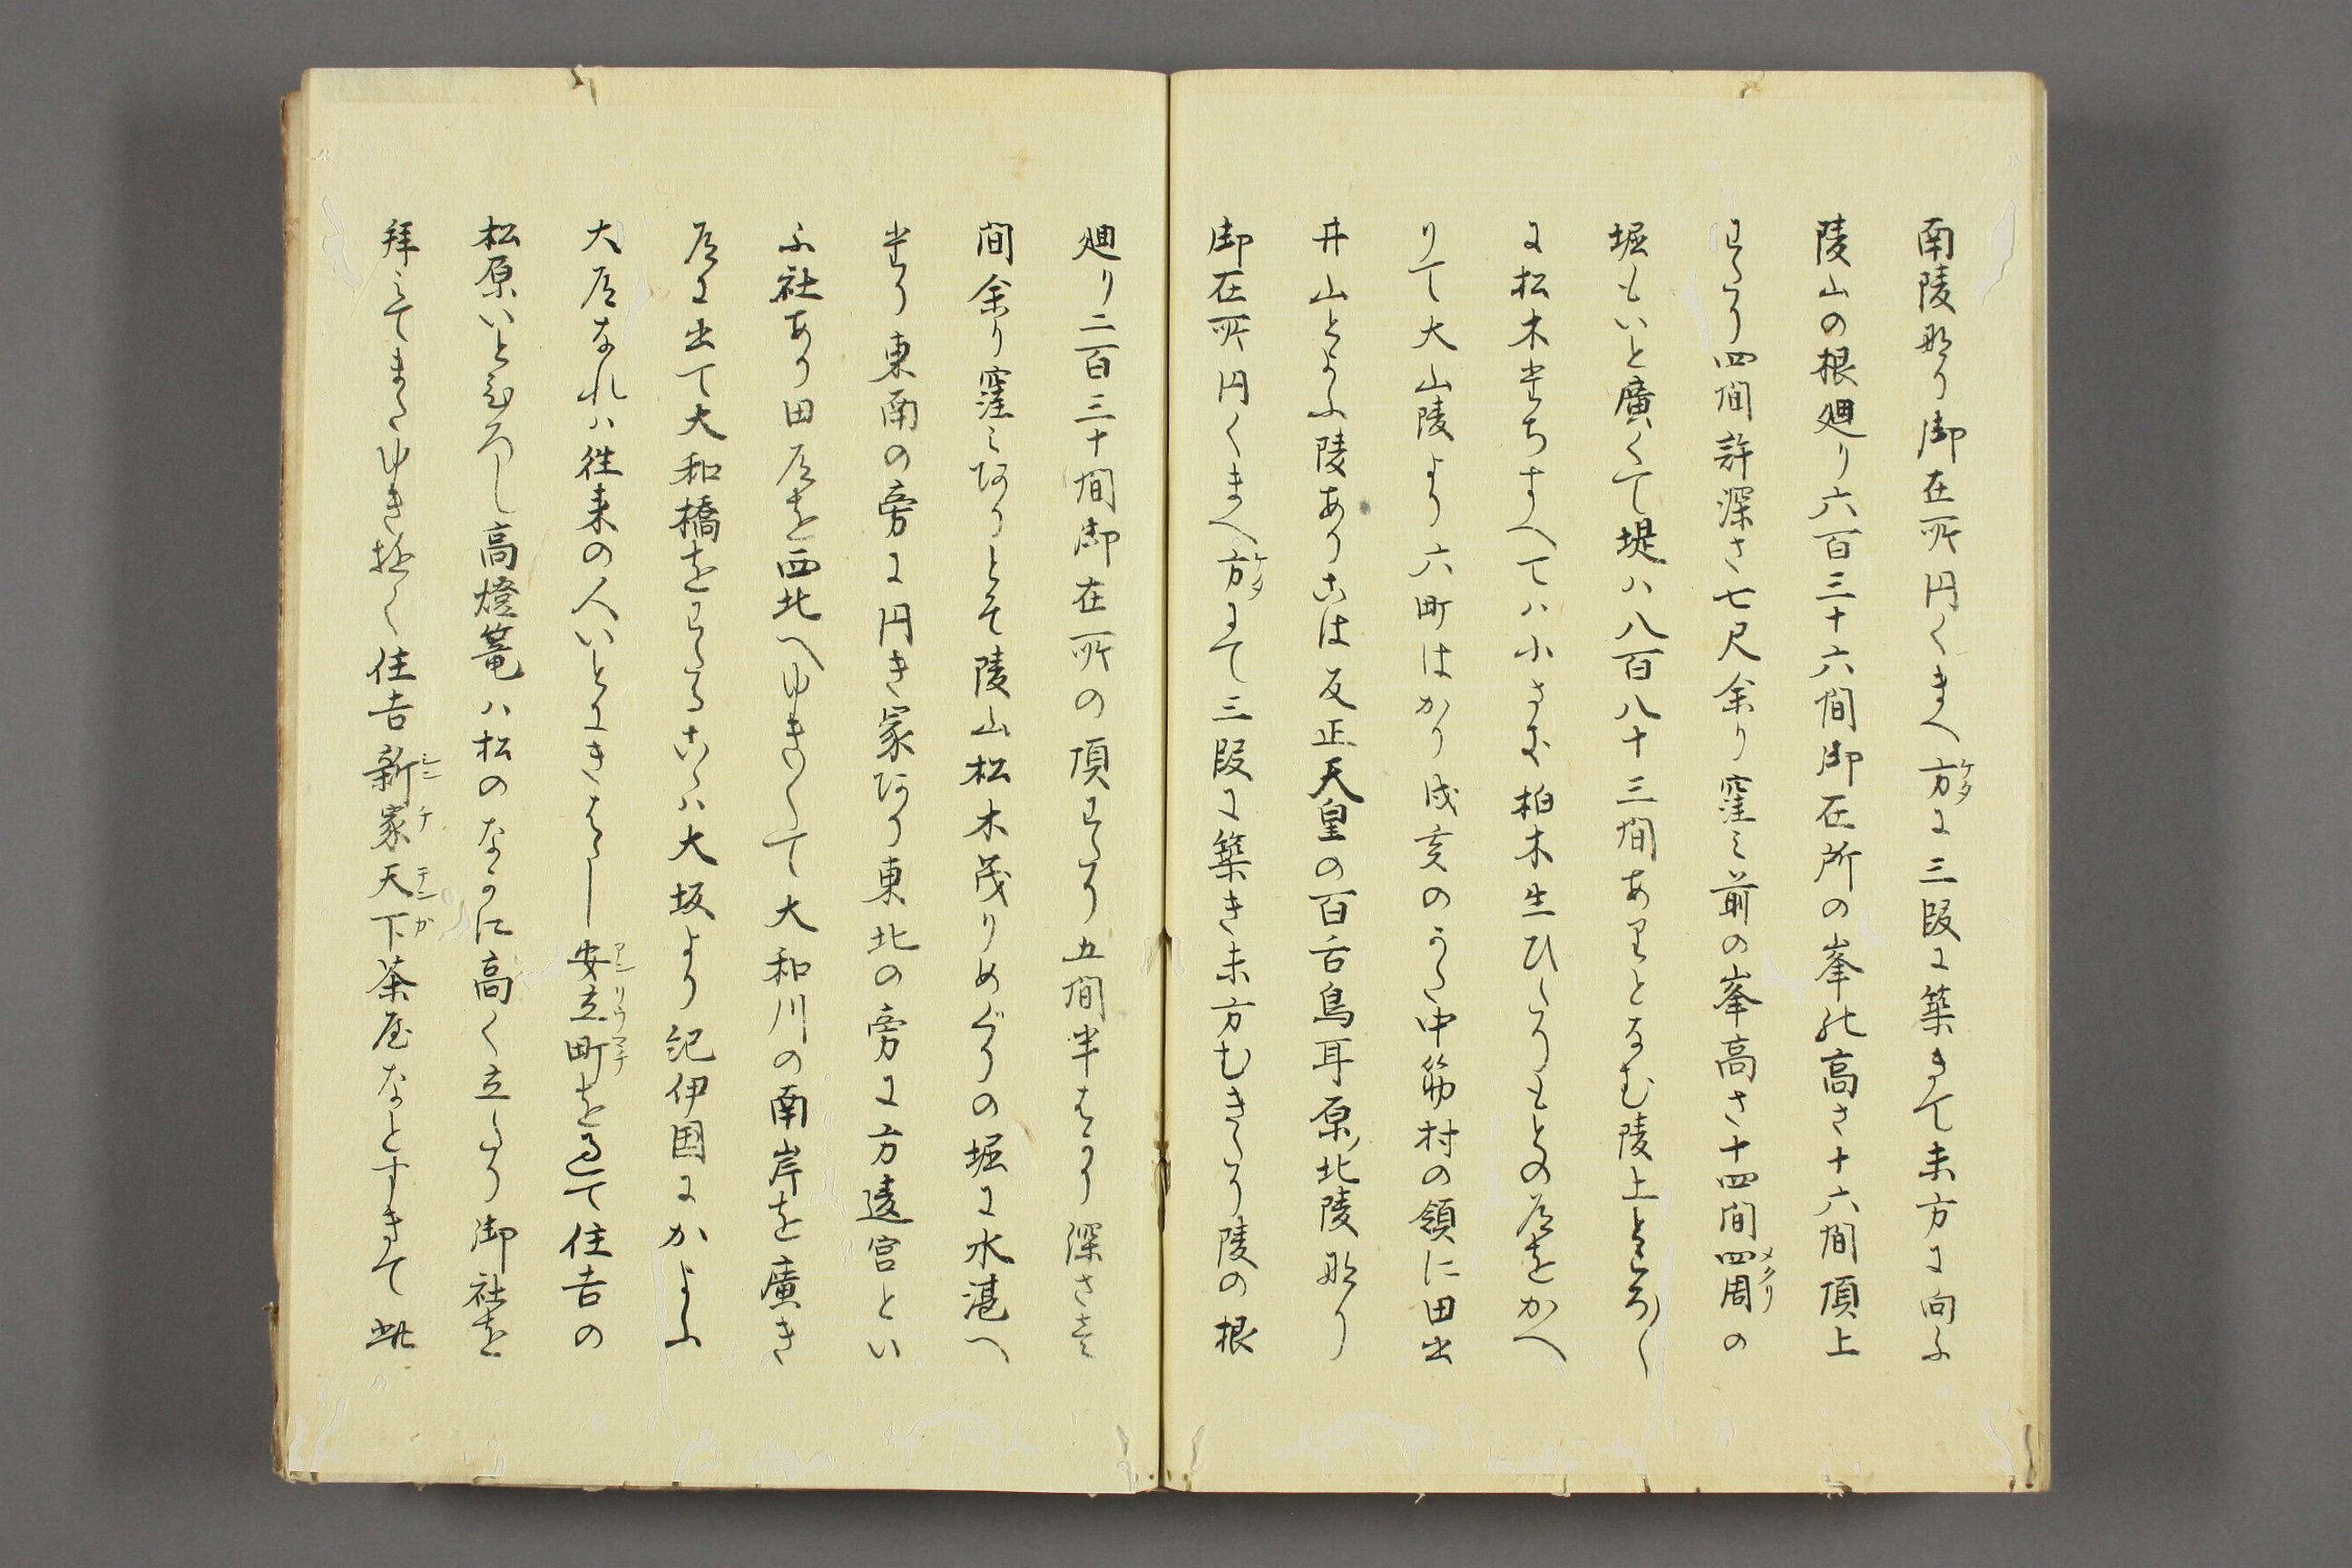 南陵那り御在所円くまへ方に三段に築きて未方に向ふ
陵山の根廻り六百三十六間御在所の峯の高さ十六間頂上
わたり四間許深さ七尺余り窪み前の峯高さ十四間四周の
堀もいと廣くて堤ハ八百八十三間ありとなむ陵上ところ〳〵
に松木たちすへてハ小さき柏木生ひたりもとの道をかへ
りて大山陵より六町はかり戌亥のかた中筋村の領に田出
井山とよふ陵ありこは反正天皇の百舌鳥耳原ノ北陵那り
御在所円くまへ方にて三段に築き未方むきたり陵の根
廻り二百三十間御在所の頂わたり五間半はかり深さ壱
間余り窪みありとそ陵山松木茂りめくりの堀に水湛へ
たり東南の旁に円き冢あり東北の旁に方違宮とい
ふ社あり田道を西北へゆき〳〵て大和川の南岸を廣き
道に出て大和橋をわたるこゝハ大坂より紀伊国にかよふ
大道なれハ往来の人いとにきはゝし安立町を過て住吉の
松原いとひろし高燈篭ハ松のなかに高く立たり御社を
拝みてまたゆき〳〵て住吉新家天下茶屋なとすきて此
メクリ
ケタ
ケタ
アンリウマチ
シンケ
テンカ